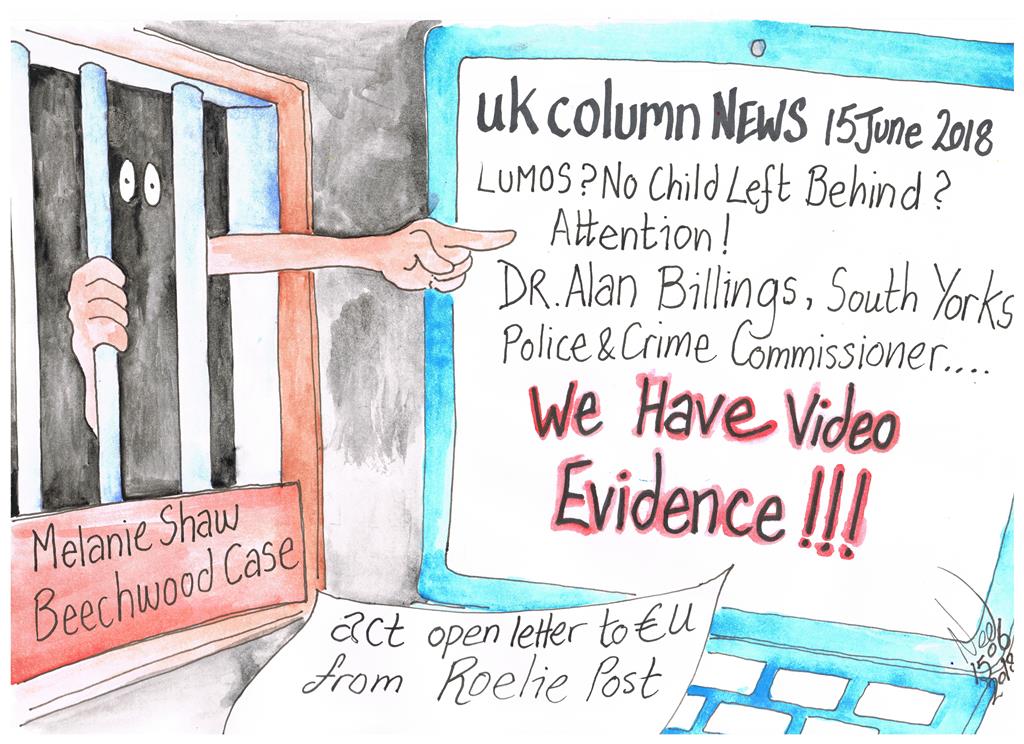 Melanie Shaw
Beechwood Case
uk column NEWS 15 June 2018
LUMOS? No Child Left Behind?
Attention!
DR. Alan Billings, South Yorks
Police & Crime Commissioner....
We Have Video
Evidence!!!
act open letter to €U
from Roelie Post